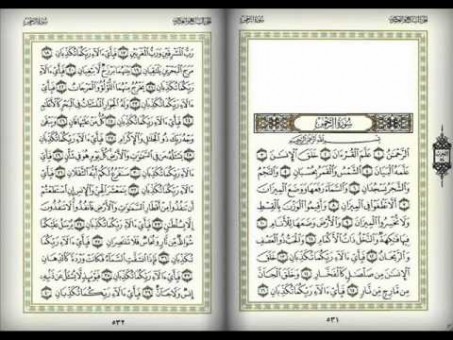 سورة الرحمن
سُورَةُ الرَّحْمَٰن
بسم الله الرحمن الرحيم
الرَّحْمَٰنُ ١ عَلَّمَ الْقُرْءَانَ ٢ خَلَقَ الْإِنسَٰنَ ٣
عَلَّمَهُ الْبَيَانَ ٤ الشَّمْسُ وَالْقَمَرُ بِحُسْبَانٍ ٥ وَالنَّجْمُ
وَالشَّجَرُ يَسْجُدَانِ ٦ وَالسَّمَآءَ رَفَعَهَا وَوَضَعَ الْمِيزَانَ ٧
أَلَّا تَطْغَوْا فِي الْمِيزَانِ ٨ وَأَقِيمُوا الْوَزْنَ بِالْقِسْطِ
وَلَا تُخْسِرُوا الْمِيزَانَ ٩ وَالْأَرْضَ وَضَعَهَا لِلْأَنَامِ ١٠
فِيهَا فَٰكِهَةٌ وَالنَّخْلُ ذَاتُ الْأَكْمَامِ ١١ وَالْحَبُّ ذُو الْعَصْفِ
وَالرَّيْحَانُ ١٢ فَبِأَيِّ ءَالَآءِ رَبِّكُمَا تُكَذِّبَانِ ١٣ خَلَقَ
الْإِنسَٰنَ مِن صَلْصَٰلٍ كَالْفَخَّارِ ١٤ وَخَلَقَ الْجَآنَّ
مِن مَّارِجٍ مِّن نَّارٍ ١٥ فَبِأَيِّ ءَالَآءِ رَبِّكُمَا تُكَذِّبَانِ ١٦
٥٣١
سورة الرحمن
رَبُّ الْمَشْرِقَيْنِ وَرَبُّ الْمَغْرِبَيْنِ ١٧ فَبِأَيِّ ءَالَآءِ رَبِّكُمَا تُكَذِّبَانِ ١٨
مَرَجَ الْبَحْرَيْنِ يَلْتَقِيَانِ ١٩ بَيْنَهُمَا بَرْزَخٌ لَّا يَبْغِيَانِ ٢٠ فَبِأَيِّ
ءَالَآءِ رَبِّكُمَا تُكَذِّبَانِ ٢١ يَخْرُجُ مِنْهُمَا اللُّؤْلُؤُ وَالْمَرْجَانُ ٢٢ فَبِأَيِّ
ءَالَآءِ رَبِّكُمَا تُكَذِّبَانِ ٢٣ وَلَهُ الْجَوَارِ الْمُنشَـَٔاتُ فِي الْبَحْرِ كَالْأَعْلَٰمِ
٢٤ فَبِأَيِّ ءَالَآءِ رَبِّكُمَا تُكَذِّبَانِ ٢٥ كُلُّ مَنْ عَلَيْهَا فَانٍ ٢٦
وَيَبْقَىٰ وَجْهُ رَبِّكَ ذُو الْجَلَٰلِ وَالْإِكْرَامِ ٢٧ فَبِأَيِّ ءَالَآءِ رَبِّكُمَا تُكَذِّبَانِ
٢٨ يَسْـَٔلُهُ مَن فِي السَّمَٰوَٰتِ وَالْأَرْضِ كُلَّ يَوْمٍ هُوَ فِي شَأْنٍ ٢٩ فَبِأَيِّ
ءَالَآءِ رَبِّكُمَا تُكَذِّبَانِ ٣٠ سَنَفْرُغُ لَكُمْ أَيُّهَ الثَّقَلَانِ ٣١ فَبِأَيِّ
ءَالَآءِ رَبِّكُمَا تُكَذِّبَانِ ٣٢ يَٰمَعْشَرَ الْجِنِّ وَالْإِنسِ إِنِ اسْتَطَعْتُمْ
أَن تَنفُذُوا مِنْ أَقْطَارِ السَّمَٰوَٰتِ وَالْأَرْضِ فَانفُذُوا لَا تَنفُذُونَ
إِلَّا بِسُلْطَٰنٍ ٣٣ فَبِأَيِّ ءَالَآءِ رَبِّكُمَا تُكَذِّبَانِ ٣٤ يُرْسَلُ عَلَيْكُمَا
شُوَاظٌ مِّن نَّارٍ وَنُحَاسٌ فَلَا تَنتَصِرَانِ ٣٥ فَبِأَيِّ ءَالَآءِ رَبِّكُمَا
تُكَذِّبَانِ ٣٦ فَإِذَا انشَقَّتِ السَّمَآءُ فَكَانَتْ وَرْدَةً كَالدِّهَانِ
٣٧ فَبِأَيِّ ءَالَآءِ رَبِّكُمَا تُكَذِّبَانِ ٣٨ فَيَوْمَئِذٍ لَّا يُسْـَٔلُ عَن ذَنبِهِ
إِنسٌ وَلَا جَآنٌّ ٣٩ فَبِأَيِّ ءَالَآءِ رَبِّكُمَا تُكَذِّبَانِ ٤٠
٥٣٢